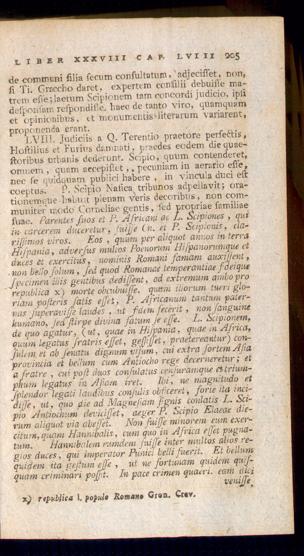 LIBER XXXVIII CAP. LVIII 905
de communi filia secum consultatum, adjecisset, non,
si Ti. Graccho daret, expertem consilii debuisse ma-
trem esse; laetum Scipionem tam concordi judicio, ipsi
desponsam respondisse. haec de tanto viro, quamquam
et opinionibus, et monumentis literarum variarent,
proponenda erant.
LVIII. Judiciis a Q. Terentio praetore perfectis,
Hostilius et Furius damnati, praedes eodem die quae-
storibus urbanis dederunt. Scipio, quum contenderet,
omnem, quam accepisset, pecuniam in aerario esse,
nec se quidquam publici habere, in vincula duci est
coeptus. P. Scipio Nasica tribunos adpellavit; ora-
tionemque habuit plenam veris decoribus, non com-
muniter modo Corneliae gentis, sed propriae familiae
suae. Parentes suos et P. Africani ac L. Scipiones, qui
in carcerem duceretur, fuisse Cn. et P. Scipionis, cla-
rissimos viros. Eos, quum per aliquot annos in terra
Hispania, adversus multos Poenorum Hispanorumque et
duces et exercitus, nominis Romani famam auxissent,
non bello solum, sed quod Romanae temperantiae fideique
specimen illis gentibus dedissent, ad extremum ambo pro
republica x) morte occubuisse. quum illorum tueri glo-
riam posteris satis esset, P. Africanum tantum pater-
nas superavisse laudes, ut fidem fecerit, non sanguine
humano, sed stirpe divina satum se esse. L. Scipionem,
de quo agatur, (ut, quae in Hispania, quae in Africa,
quum legatus fratris esset, gessisset, praetereantur) con-
sulem et ab senatu dignum visum, cui extra sortem Asia
provincia et bellum cum Antiocho rege decerneretur; et
a fratre, cui post duos consulatus censuramque et trium-
phum legatus in Asiam iret. Ibi, ne magnitudo et
splendor legati laudibus consulis officeret, forte ita inci-
disse, ut, quo die ad Magnesiam signis conlatis L. Sci-
pio Antiochum devicisset, aeger P. Scipio Elaeae die-
rum aliquot via abesset. Non fuisse minorem eum exer-
citum, quam Hannibalis, cum quo in Africa esset pugna-
tum. Hannibalem eumdem fuisse inter multos alios re-
gios duces, qui imperator Punici belli fuerit. Et bellum
quidem ita gestum esse, ut ne fortunam quidem quis-
quam criminari possit. In pace crimen quaeri. eam dici
venisse.
x) republica l. populo Romano Gron. Crev.